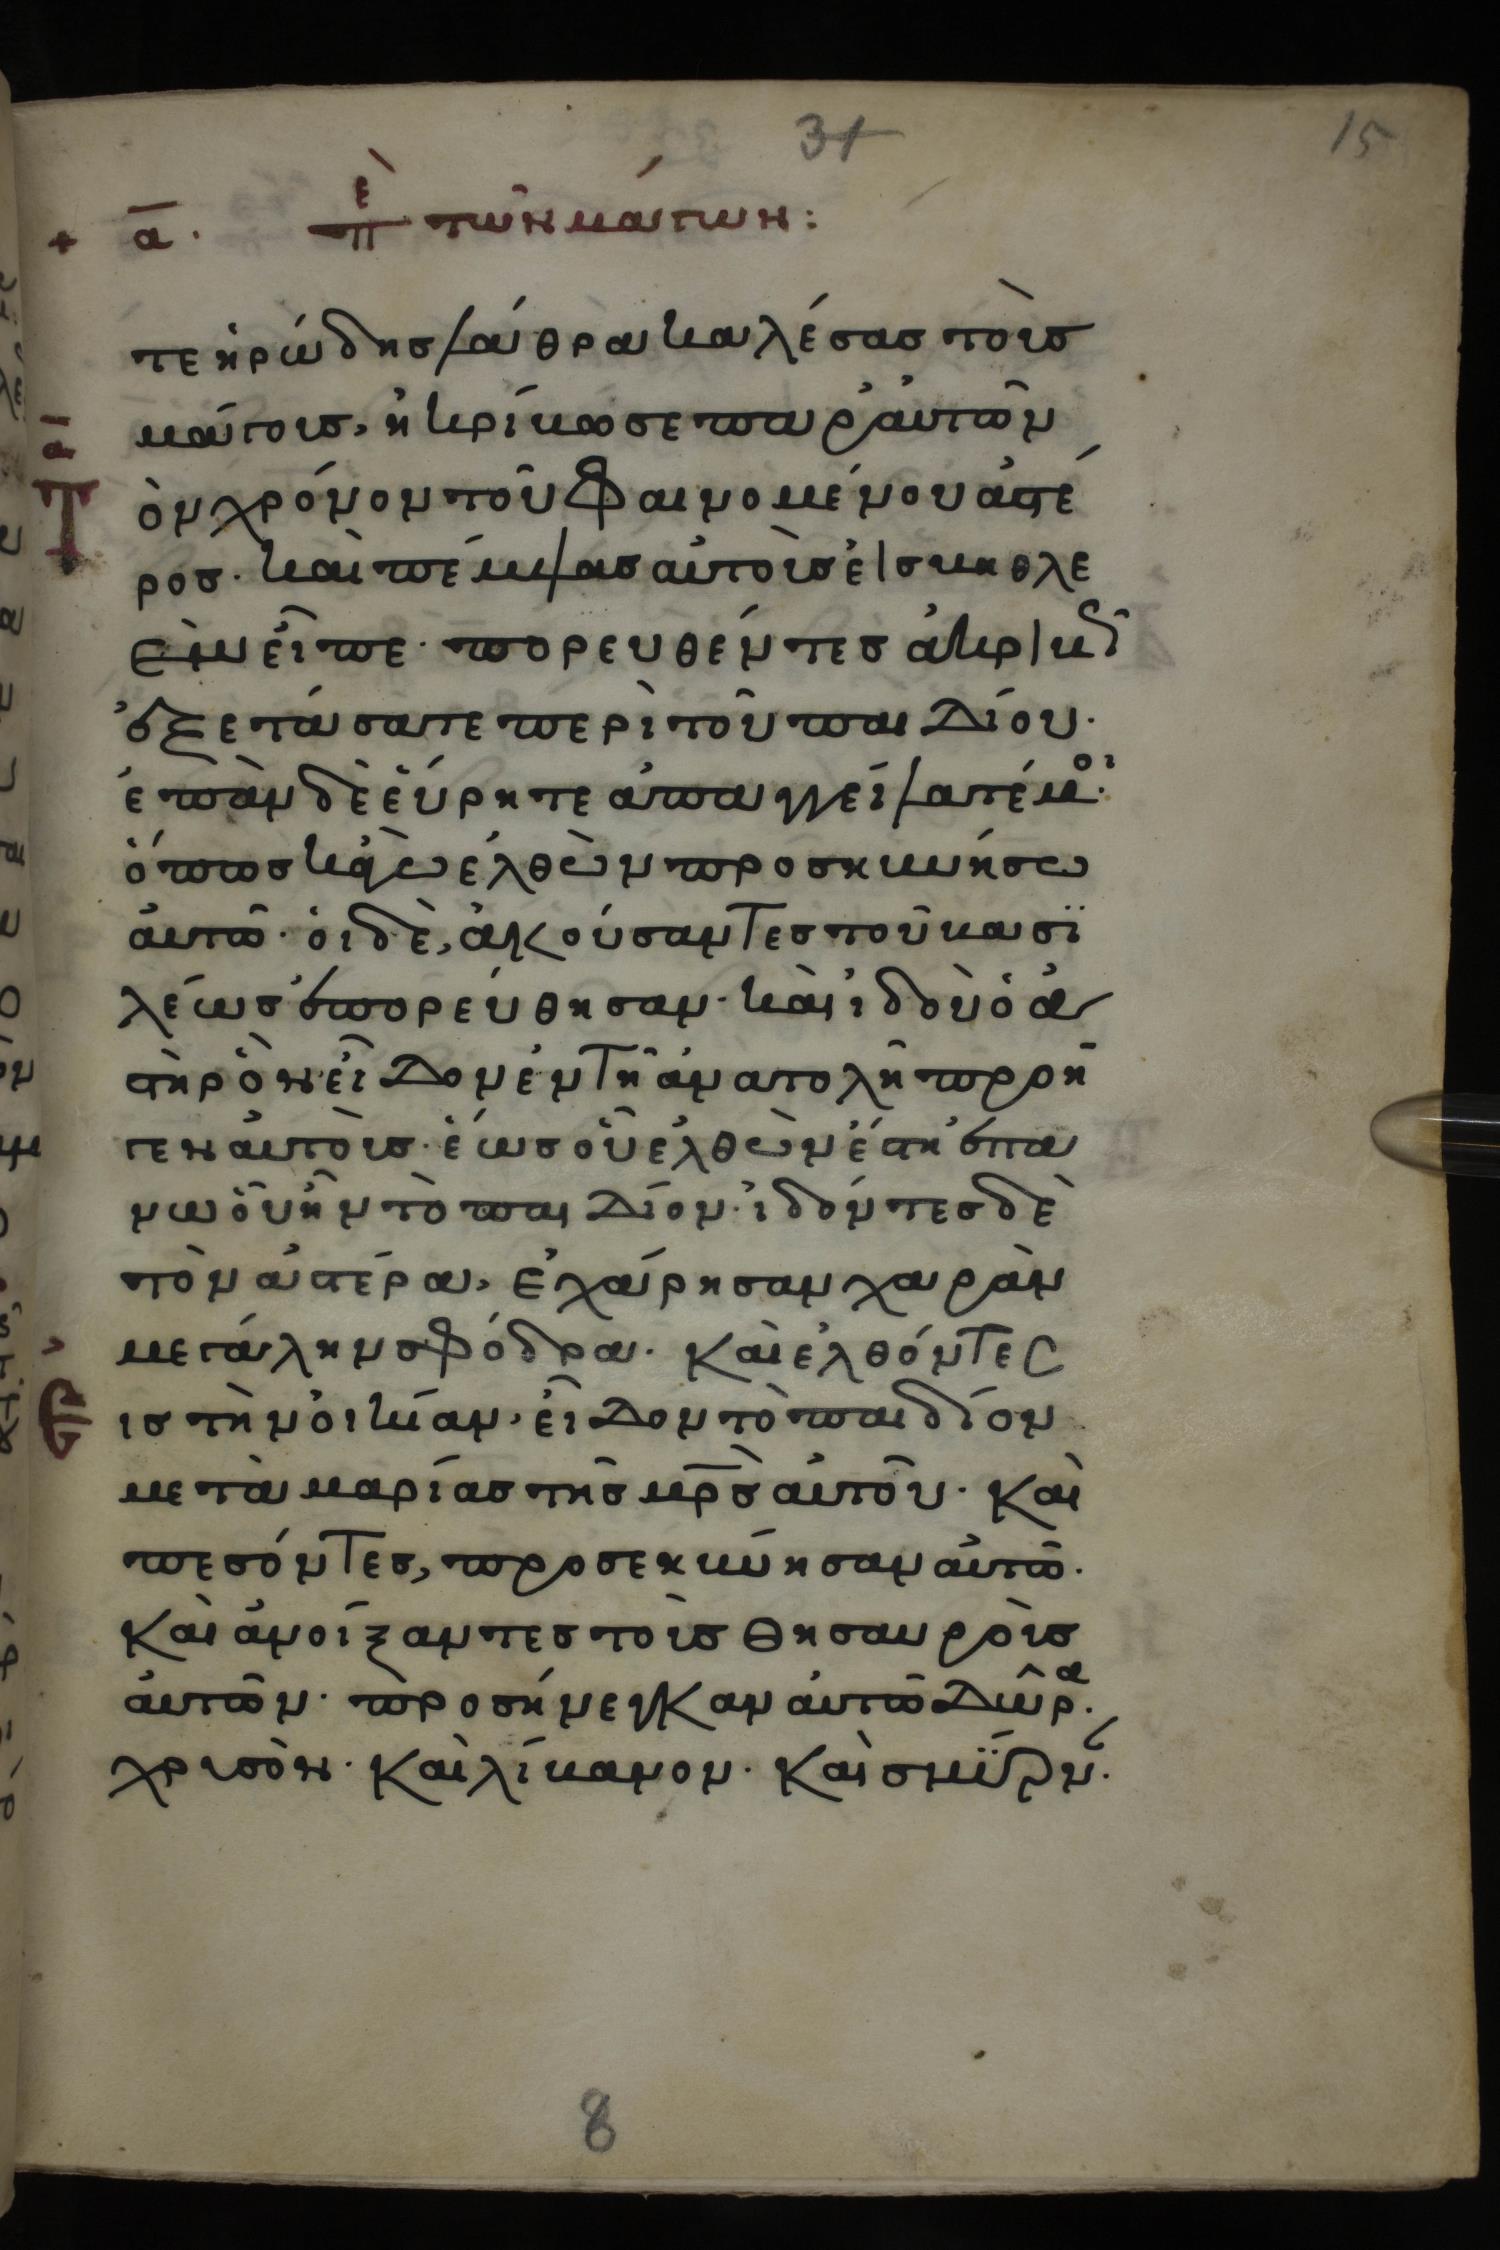 31
15
+ α̅. πὲ τῶν μάγων:
τε ἡρώδης λάθρα καλέσας τοὺς
μάγους, ἠκρίβωσε παρ αὐτῶν
α̅
Τ
ὸν χρόνον τοῦ φαινομένου ἀστέ
ρος. καὶ πέμψας αὐτοὺς εἰς βηθλε
ὲμ εἶπε. πορευθέντες ἀκριβῶ
ἐξετάσατε περὶ τοῦ παιδίου.
ἐπὰν δὲ εὕρητε ἀπαγγείλατέ μοι.
ὅπως κἀγὼ ἐλθὼν προσκυνήσω
αὐτῶ. οἱ δὲ, ἀκούσαντες τοῦ βασϊ
λέως ἐπορεύθησαν. καὶ ἰδοὺ ὁ ἀ
στὴρ ὃν εἶδον ἐν τῆ ἀνατολῆ προῆ
γεν αὐτοὺς. ἕως οὗ ἐλθὼν ἔστη ἐπά
νω οὗ ἦν τὸ παιδίον. ἰδόντες δὲ
τὸν ἀστέρα, ἐχάρησαν χαρὰν
μεγάλην σφόδρα. καὶ ἐλθόντες
Ἐ
ις τὴν οἰκίαν, εἶδον τὸ παιδίον
μετὰ μαρίας τῆς μρ̅ς αὐτοῦ. καὶ
πεσόντες, προσεκύνησαν αὐτῶ.
καὶ ἀνοίξαντες τοὺς θησαυροὺς
αὐτῶν. προσήνεγκαν αὐτῶ δῶρα.
χρυσὸν. καὶ λίβανον. καὶ σμϋρν.
8